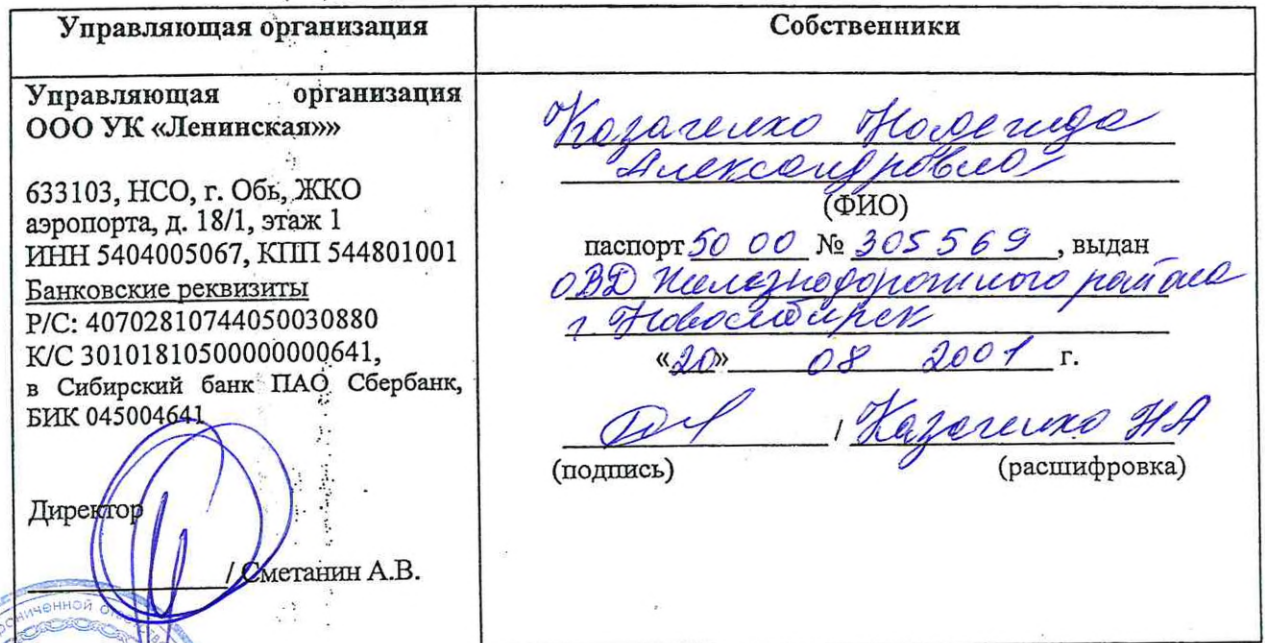 Управляющая организация
Собственники
Управляющая организация
ООО УК «Ленинская»»
633103, НСО, г. Обь, ЖКО
аэропорта, д. 18/1, этаж 1
ИНН 5404005067, КПП 544801001
Банковские реквизиты
Р/С: 40702810744050030880
К/С 30101810500000000641,
в Сибирский банк ПАО Сбербанк,
БИК 045004641
Директор
/ Сметанин А.В.
Казаченко Надежда
Александровна
(ФИО)
паспорт 50 00 № 305569, выдан
ОВД Железнодорожного района
г. Новосибирск
«20» 08 2001 г.
/ Казаченко НА
(подпись) (расшифровка)